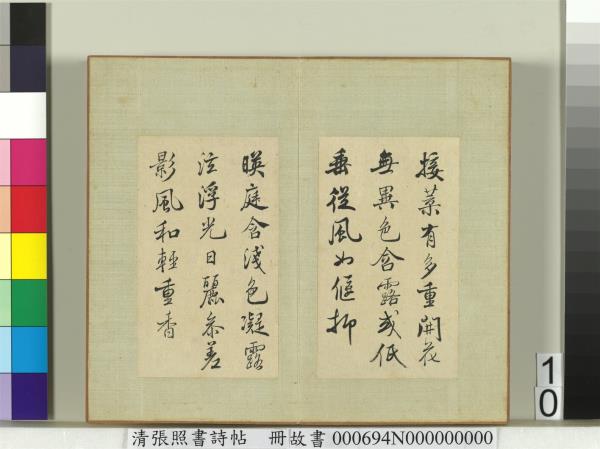 接葉有多重開花
無異色含露或低
垂從風如偃抑
暎庭含淺色凝露
泫浮光日麗參差
影風和輕重香
10
清張照書詩帖　冊故書 000694N000000000